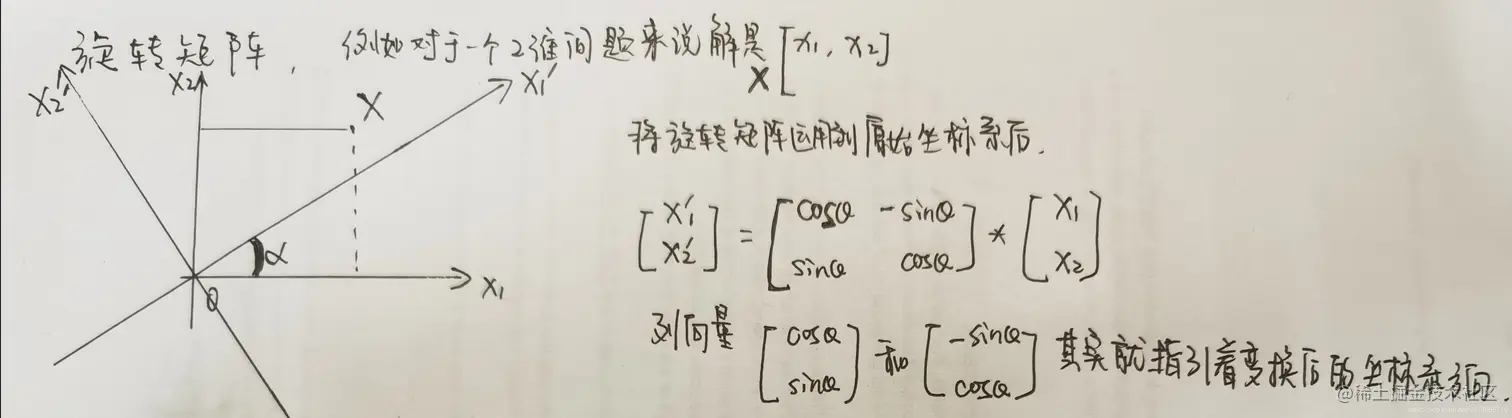 旋转矩阵, 例如对于一个2维问题来说解是X[x₁, x₂]
X₂'
X₂
X₁'
X
将旋转矩阵运用到原始坐标系后.
[X₁' X₂'] = [cosθ -sinθ sinθ cosθ] * [X₁ X₂]
α
X₁
O
列向量 [cosθ sinθ] 和 [-sinθ cosθ] 其实就指引着变换后的坐标系方向.
@稀土掘金技术社区